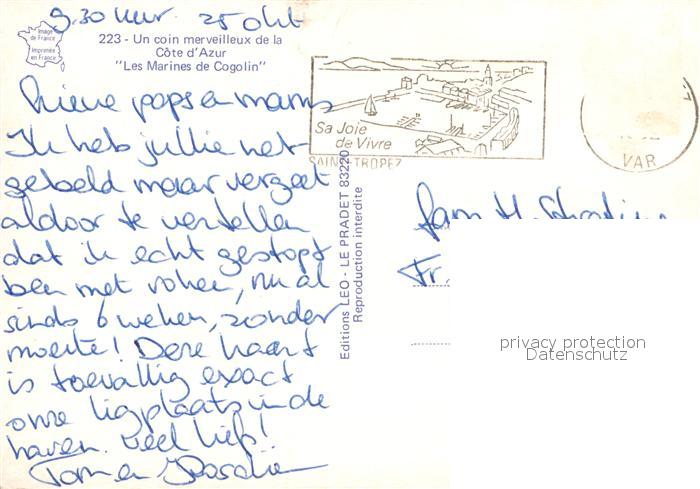 9.30 uur 25 okt
Image
de France
Imprimée
en France
223 - Un coin merveilleux de la
Côte d'Azur
"Les Marines de Cogolin"
Lieve paps en mams
Ik heb jullie net
gebeld maar vergeet
aldoor te vertellen
dat ik echt gestopt
ben met roken, nu al
sinds 6 weken, zonder
moeite! Deze kaart
is toevallig exact
onze ligplaats in de
haven. Veel liefs!
Tom en
Sa Joie
de Vivre
SAINT-TROPEZ
VAR
Editions LEO - LE PRADET 83220
Reproduction interdite
Fam. H.
Fr.
privacy protection
Datenschutz